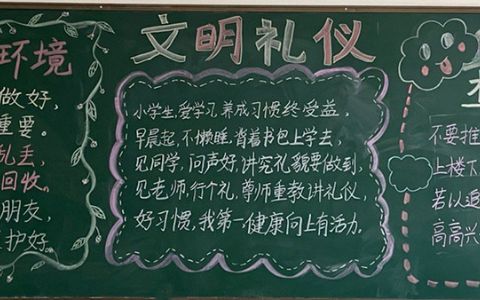 环境
做好,
重要。
乱丢
回收。
朋友,
护好。
文明礼仪
小学生,爱学习,养成习惯终受益,
早晨起,不懒睡,背着书包上学去,
见同学,问声好,讲究礼貌要做到,
见老师,行个礼,尊师重教讲礼仪,
好习惯,我第一健康向上有活力。
不要推
上楼下
若以追
高高兴